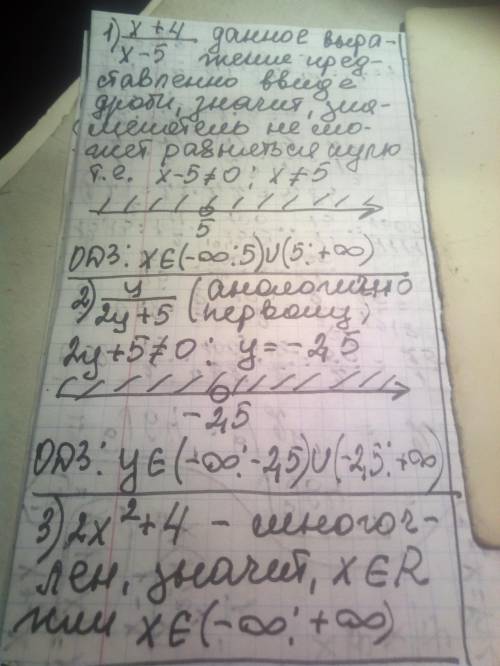 1) x+4/x-5 данное выра-
жение пред-
ставленно ввиде
дроби, значит, зна-
менатель не мо-
жет равняться нулю
т.е. x-5≠0; x≠5
5
ОДЗ: x∈(-∞;5)∪(5;+∞)
2) y/2y+5 (аналогично
первому)
2y+5≠0; y=-2,5
-2,5
ОДЗ: y∈(-∞;-2,5)∪(-2,5;+∞)
3) 2x²+4 - многоч-
лен, значит, x∈R
или x∈(-∞;+∞)